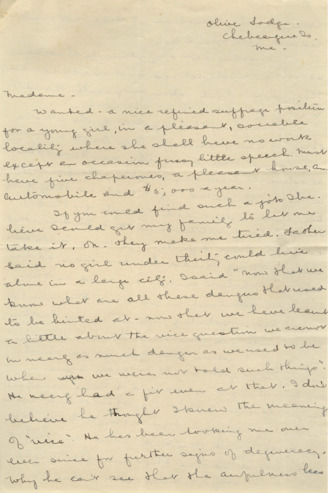 Olive Lodge.
Chebeague Is.
Me.
Madame -
Wanted - a nice refined suffrage position
for a young girl, in a pleasant, sociable
locality where she shall have no work
except an occasion fussy little speech must
have five chaperones, a pleasant house, an
automobile and $5,000 a year.
If you could find such a job I be-
lieve I could get my family to let me
take it. Oh. they make me tired. Father
said no girl under thirty could live
alone in a large city. I said "now that we
know what are all these dangers that used
to be hinted at - now that we have learnt
a little about the vice question we are not
in nearly as much danger as we used to be
when we were not told such things".
He nearly had a fit even at that, I don't
believe he thought I knew the meaning
of "vice". He has been looking me over
ever since for further signs of degeneracy.
Why he can't see that the awfulness